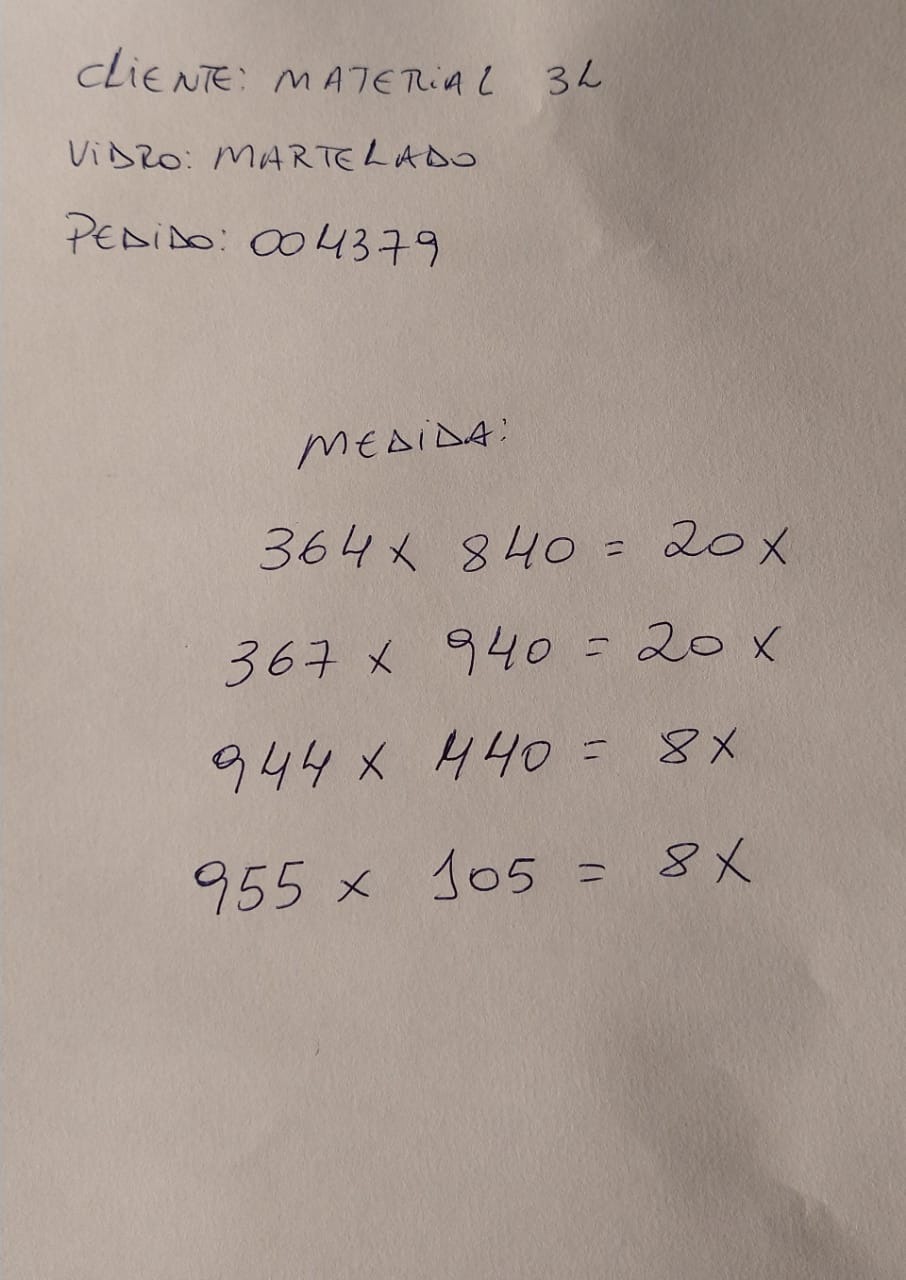 CLIENTE: MATERIAL 3L
VIDRO: MARTELADO
PEDIDO: 004379
MEDIDA:
364 x 840 = 20 x
367 x 940 = 20 x
944 x 440 = 8 x
955 x 105 = 8 x